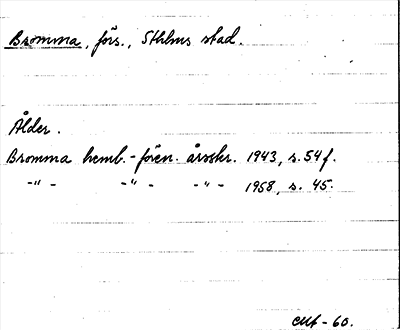 Bromma, förs., Sthlms stad.
Ålder.
Bromma hemb.-fören. årsskr. 1943, s. 54 f.
-"- -"- -"- 1958, s. 45.
-60.